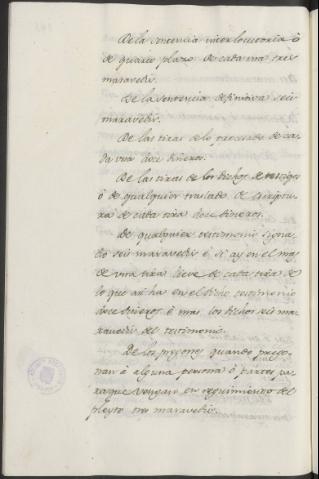 De la sentencia interlocutoria ó
de quarto plazo de cada una tres
maravedis.
De la sentencia definitiva seis
maravedis.
De las tiras de lo procesado de ca-
da una doce dineros.
De las tiras de los dichos de testigos
ó de qualquier traslado de escriptu-
ra de cada tira doce dineros.
De qualquier testimonio signa-
do seis maravedis é si ay en el mas
de una tira lieve de cada tira de
lo que así ha en el dicho testimonio
doce dineros é mas los dichos seis ma-
ravedis del testimonio.
De los pregones quando prego-
nan á alguna persona ó partes pa-
ra que vengan en seguimiento del
pleyto tres maravedis.